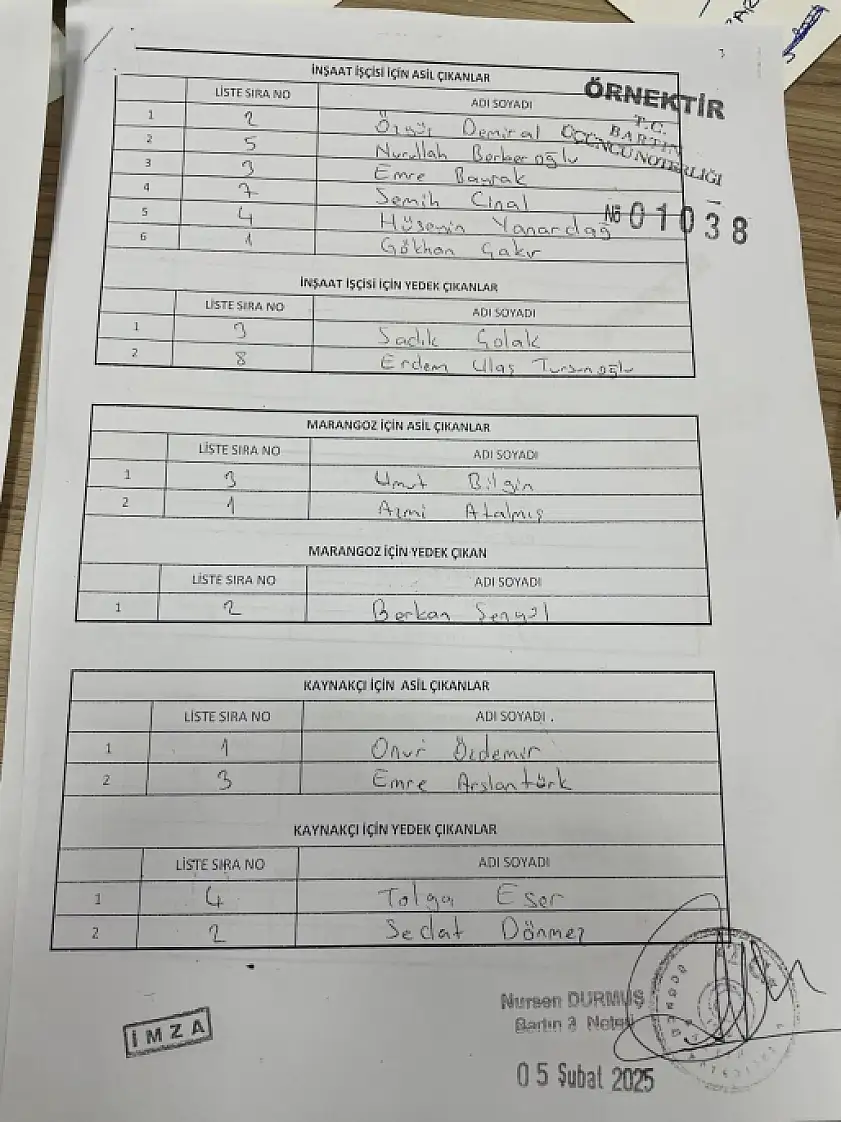 İNŞAAT İŞÇİSİ İÇİN ASİL ÇIKANLAR
LİSTE SIRA NO ADI SOYADI
ÖRNEKTİR
T.C.
BARTIN
ÜÇÜNCÜ NOTERLİĞİ
№ 01038
1 2 Özgür Demiral
2 5 Nurullah Berberoğlu
3 3 Emre Bayrak
4 7 Semih Cinal
5 4 Hüseyin Yanardağ
6 1 Gökhan Çakır
İNŞAAT İŞÇİSİ İÇİN YEDEK ÇIKANLAR
LİSTE SIRA NO ADI SOYADI
1 3 Sadık Çolak
2 8 Erdem Ulaş Tursunoğlu
MARANGOZ İÇİN ASİL ÇIKANLAR
LİSTE SIRA NO ADI SOYADI
1 3 Umut Bilgin
2 1 Azmi Atalmış
MARANGOZ İÇİN YEDEK ÇIKAN
LİSTE SIRA NO ADI SOYADI
1 2 Berkan Şengül
KAYNAKÇI İÇİN ASİL ÇIKANLAR
LİSTE SIRA NO ADI SOYADI .
1 1 Onur Özdemir
2 3 Emre Arslantürk
KAYNAKÇI İÇİN YEDEK ÇIKANLAR
LİSTE SIRA NO ADI SOYADI
1 4 Tolga Eser
2 2 Sedat Dönmez
İMZA
Nursen DURMUŞ
Bartın 3 Noteri
05 Şubat 2025